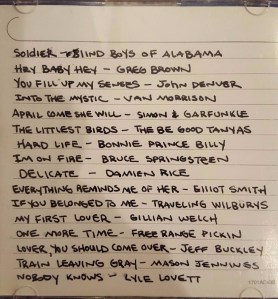 SOLDIER - BLIND BOYS OF ALABAMA
HEY BABY HEY - GREG BROWN
YOU FILL UP MY SENSES - JOHN DENVER
INTO THE MYSTIC - VAN MORRISON
APRIL COME SHE WILL - SIMON & GARFUNKLE
THE LITTLEST BIRDS - THE BE GOOD TANYAS
HARD LIFE - BONNIE PRINCE BILLY
IM ON FIRE - BRUCE SPRINGSTEEN
DELICATE - DAMIEN RICE
EVERYTHING REMINDS ME OF HER - ELLIOT SMITH
IF YOU BELONGED TO ME - TRAVELING WILBURYS
MY FIRST LOVER - GILLIAN WELCH
ONE MORE TIME - FREE RANGE PICKIN
LOVER, YOU SHOULD COME OVER - JEFF BUCKLEY
TRAIN LEAVING GRAY - MASON JENNINGS
NOBODY KNOWS - LYLE LOVETT